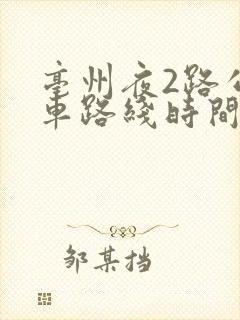 亳州夜2路公
車路綫時間
邹某挡